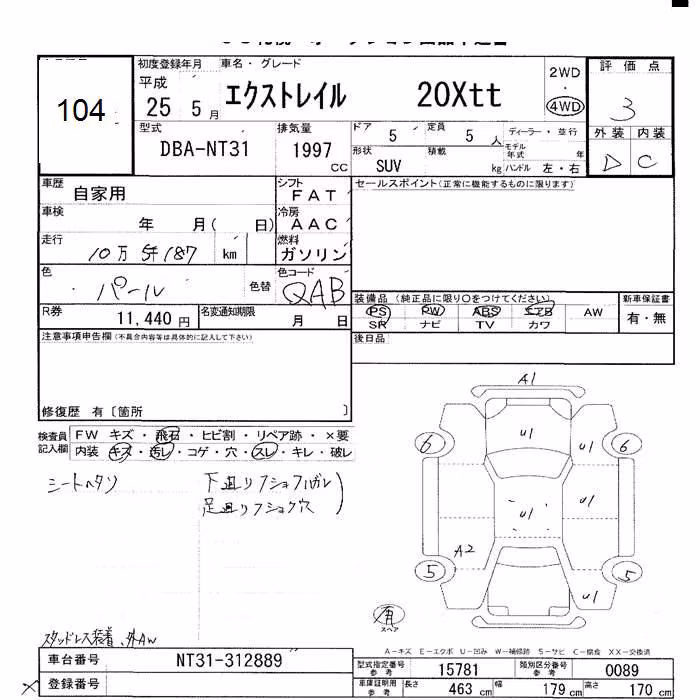 104
初度登録年月 車名・グレード
平成 25 5 月 エクストレイル 20Xtt
2WD
・
4WD
評価点
3
外装 内装
D C
型式 排気量 ドア 5 定員 5 人 ディーラー・並行
DBA-NT31 1997 cc 形状 SUV 積載 kg モデル年式 年
ハンドル 左・右
車歴 自家用 シフト FAT セールスポイント(正常に機能するものに限ります)
車検 年 月( 日) 冷房 AAC
走行 10万 km 燃料 ガソリン
色 パール 色替 色コード QAB
装備品 (純正品に限り○をつけてください) 新車保証書
PS PW ABS エアB AW 有・無
SR ナビ TV カワ
R券 11,440 円 名変通知期限 月 日
後日品
注意事項申告欄(不具合内容等は具体的に記入して下さい)
修復歴 有〔箇所 〕
検査員記入欄 FW キズ・飛石・ヒビ割・リペア跡・×要
内装 キズ・汚レ・コゲ・穴・スレ・キレ・破レ
シートヘタリ
A1
6 U1 U1 6
U1 U1
A2
5 U1 5
有
スペア
スタッドレス装着、外AW
A-キズ E-エクボ U-凹み W-補修跡 S-サビ C-腐食 XX-交換済
車台番号 NT31-312889
登録番号
型式指定番号 参考 15781 類別区分番号 参考 0089
車庫証明用 参考 長さ 463 cm 幅 179 cm 高さ 170 cm